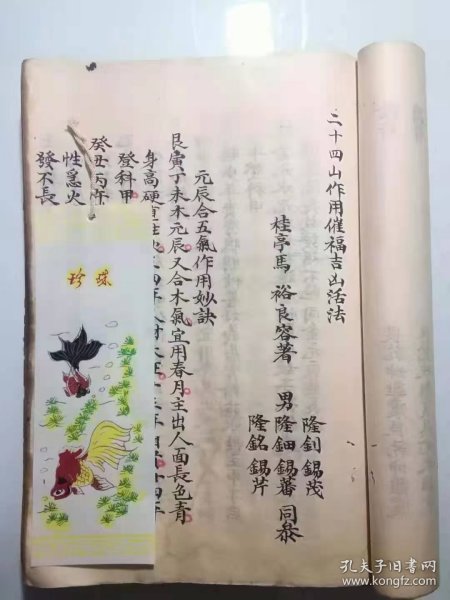 二十四山作用催福吉凶活法
桂亭馬 裕良容著 男
隆釗 錫茂
隆鈿 錫蕃 同叅
隆銘 錫芹
元辰合五氣作用妙訣
艮寅丁未木元辰又合木氣宜用春月主出人面長色青
身高硬
登科甲
癸丑丙午
性急火
發不長
珍珠
孔夫子旧书网
www.kongfz.com